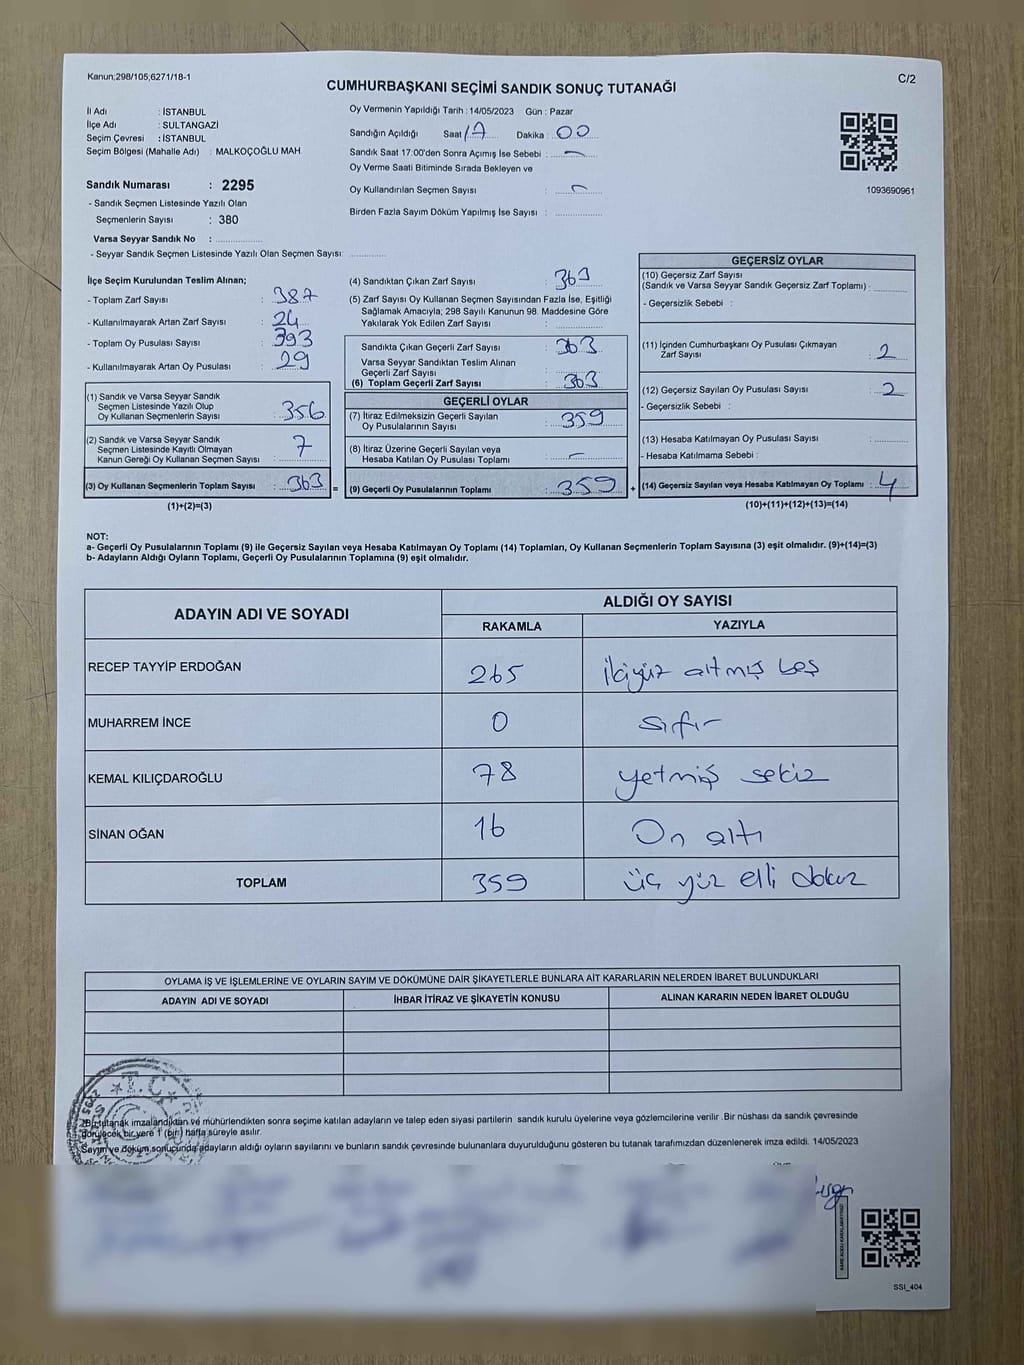 Kanun;298/105,6271/18-1
C/2
CUMHURBAŞKANI SEÇİMİ SANDIK SONUÇ TUTANAĞI
İl Adı : İSTANBUL
İlçe Adı : SULTANGAZİ
Seçim Çevresi : İSTANBUL
Seçim Bölgesi (Mahalle Adı) : MALKOÇOĞLU MAH.
Sandık Numarası : 2295
- Sandık Seçmen Listesinde Yazılı Olan
Seçmenlerin Sayısı : 380
Varsa Seyyar Sandık No :
- Seyyar Sandık Seçmen Listesinde Yazılı Olan Seçmen Sayısı:
Oy Vermenin Yapıldığı Tarih : 14/05/2023 Gün : Pazar
Sandığın Açıldığı Saat 17 Dakika : 00
Sandık Saat 17.00'den Sonra Açımış İse Sebebi : —
Oy Verme Saati Bitiminde Sırada Bekleyen ve
Oy Kullandırılan Seçmen Sayısı : —
Birden Fazla Sayım Döküm Yapılmış İse Sayısı :
1093690961
İlçe Seçim Kurulundan Teslim Alınan;
- Toplam Zarf Sayısı : 387
- Kullanılmayarak Artan Zarf Sayısı : 24
- Toplam Oy Pusulası Sayısı : 393
- Kullanılmayarak Artan Oy Pusulası : 29
(1) Sandık ve Varsa Seyyar Sandık
Seçmen Listesinde Yazılı Olup
Oy Kullanan Seçmenlerin Sayısı : 356
(2) Sandık ve Varsa Seyyar Sandık
Seçmen Listesinde Kayıtlı Olmayan
Kanun Gereği Oy Kullanan Seçmen Sayısı : 7
(3) Oy Kullanan Seçmenlerin Toplam Sayısı : 363 =
(1)+(2)=(3)
(4) Sandıktan Çıkan Zarf Sayısı : 363
(5) Zarf Sayısı Oy Kullanan Seçmen Sayısından Fazla İse, Eşitliği
Sağlamak Amacıyla; 298 Sayılı Kanunun 98. Maddesine Göre
Yakılarak Yok Edilen Zarf Sayısı :
Sandıkta Çıkan Geçerli Zarf Sayısı : 363
Varsa Seyyar Sandıktan Teslim Alınan
Geçerli Zarf Sayısı :
(6) Toplam Geçerli Zarf Sayısı : 363
GEÇERLİ OYLAR
(7) İtiraz Edilmeksizin Geçerli Sayılan
Oy Pusulalarının Sayısı : 359
(8) İtiraz Üzerine Geçerli Sayılan veya
Hesaba Katılan Oy Pusulası Toplamı : —
(9) Geçerli Oy Pusulalarının Toplamı : 359 +
GEÇERSİZ OYLAR
(10) Geçersiz Zarf Sayısı
(Sandık ve Varsa Seyyar Sandık Geçersiz Zarf Toplamı) :
- Geçersizlik Sebebi :
(11) İçinden Cumhurbaşkanı Oy Pusulası Çıkmayan
Zarf Sayısı : 2
(12) Geçersiz Sayılan Oy Pusulası Sayısı : 2
- Geçersizlik Sebebi :
(13) Hesaba Katılmayan Oy Pusulası Sayısı :
- Hesaba Katılmama Sebebi :
(14) Geçersiz Sayılan veya Hesaba Katılmayan Oy Toplamı : 4
(10)+(11)+(12)+(13)=(14)
NOT:
a- Geçerli Oy Pusulalarının Toplamı (9) ile Geçersiz Sayılan veya Hesaba Katılmayan Oy Toplamı (14) Toplamları, Oy Kullanan Seçmenlerin Toplam Sayısına (3) eşit olmalıdır. (9)+(14)=(3)
b- Adayların Aldığı Oyların Toplamı, Geçerli Oy Pusulalarının Toplamına (9) eşit olmalıdır.
ADAYIN ADI VE SOYADI
ALDIĞI OY SAYISI
RAKAMLA YAZIYLA
RECEP TAYYİP ERDOĞAN 265 ikiyüz altmış beş
MUHARREM İNCE 0 sıfır
KEMAL KILIÇDAROĞLU 78 yetmiş sekiz
SİNAN OĞAN 16 On altı
TOPLAM 359 üç yüz elli dokuz
OYLAMA İŞ VE İŞLEMLERİNE VE OYLARIN SAYIM VE DÖKÜMÜNE DAİR ŞİKAYETLERLE BUNLARA AİT KARARLARIN NELERDEN İBARET BULUNDUKLARI
ADAYIN ADI VE SOYADI İHBAR İTİRAZ VE ŞİKAYETİN KONUSU ALINAN KARARIN NEDEN İBARET OLDUĞU
T.C.
Bu tutanak imzalandıktan ve mühürlendikten sonra seçime katılan adayların ve talep eden siyasi partilerin sandık kurulu üyelerine veya gözlemcilerine verilir .Bir nüshası da sandık çevresinde
görülecek bir yere 1 (bir) hafta süreyle asılır.
Sayım ve döküm sonucunda adayların aldığı oyların sayılarını ve bunların sandık çevresinde bulunanlara duyurulduğunu gösteren bu tutanak tarafımızdan düzenlenerek imza edildi. 14/05/2023
SSI_404